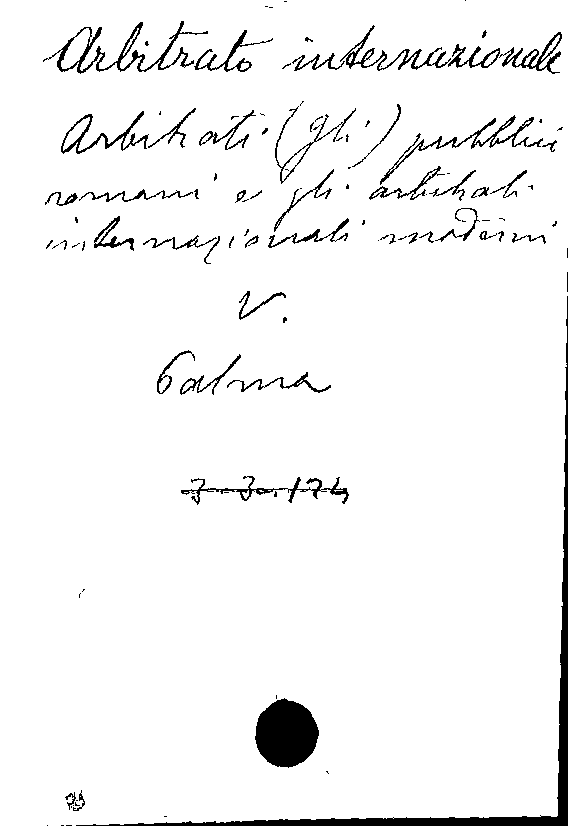 Arbitrato internazionale
Arbitrati (gli) pubblici
romani e gli arbitrati
internazionali moderni
V.
Palma